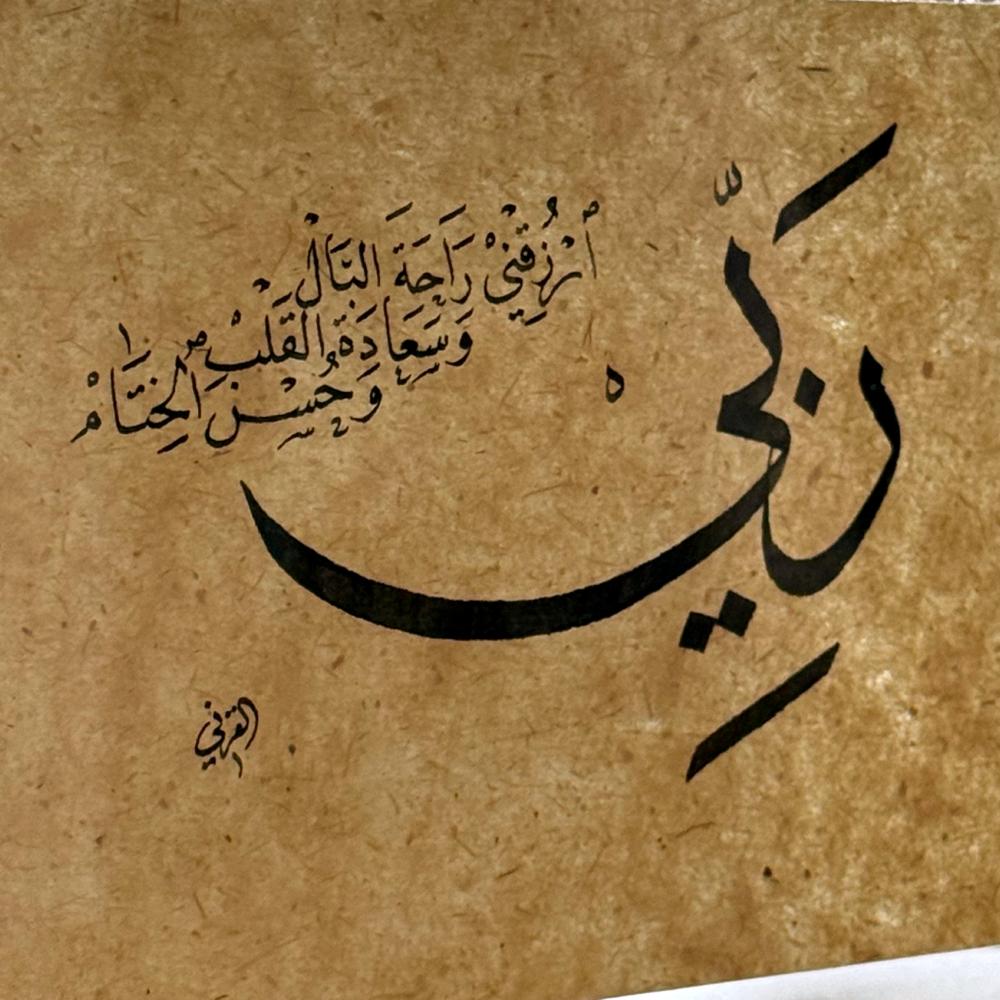 رَبِّي
اُرْزُقْنِيْ رَاحَةَ البَّالْ
وَسَعَادَةُ القَلْبْ
وَحُسْنَ الخِتَّامْ
القرني